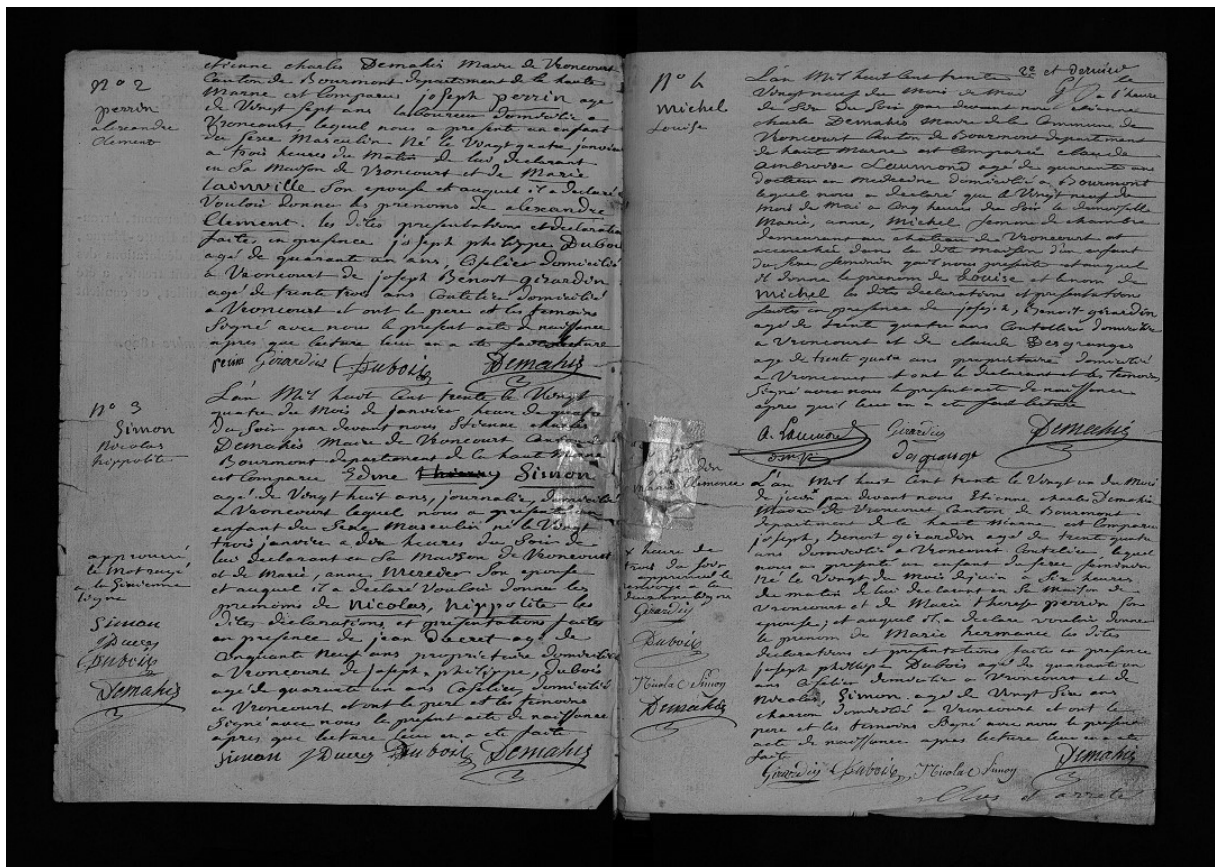 N° 2
perrin
alexandre
Clement
etienne charles Demahis Maire de Vroncourt
Canton de Bourmont departement de la haute
Marne est Comparu joseph perrin age
de Vingt sept ans laboureur domicilie a
Vroncourt, lequel nous a presente un enfant
du sexe Masculin Né le Vingt quatre janvier
a trois heures du Matin de lui declarant
en Sa Maison de Vroncourt et de Marie
lainville Son epouse et auquel il a declaré
Vouloir donner les prenoms de alexandre
Clement. les dites presentations et declaration
faites en presence joseph philippe Dubois
agé de quarante un ans, domicilié
a Vroncourt de joseph Benoit girardin
agé de trente trois ans Coutelier domicilié
a Vroncourt et ont le pere et les temoins
Signé avec nous le present acte de naissance
apres que lecture leur en a ete faite
perrin Girardin Dubois Demahis
N° 3
Simon
Nicolas
hippolite
L'an Mil huit Cent trente le Vingt
quatre du Mois de janvier, heure de quatre
du Soir par devant nous Etienne charles
Demahis Maire de Vroncourt Canton de
Bourmont departement de la haute Marne
est Comparu Edme Simon
agé de Vingt huit ans, journalier, domicilié
a Vroncourt lequel nous a presenté un
enfant du Sexe Masculin né le Vingt
trois janvier a dix heures du Soir de
lui declarant en Sa Maison de Vroncourt
et de Marie, anne Mercier Son epouse
et auquel il a déclaré Vouloir donner les
prenoms de Nicolas, hippolite les
dites déclarations et presentations faites
en presence de jean Ducret agé de
Cinquante Neuf ans proprietaire domicilié
a Vroncourt de joseph, philippe Dubois
agé de quarante un ans domicilié
a Vroncourt et ont le pere et les temoins
Signé avec nous le present acte de naissance
apres que lecture leur en a ete faite
Simon Dubois Demahis
approuvé
le Mot rayé
a la Sixieme
ligne
Simon
Dubois
Demahis
N° 4
Michel
Louise
2e et dernier
L'an Mil huit Cent trente le
Vingt neuf du Mois de Mai a l'heure
du Soir par devant nous etienne
charles Demahis Maire de la Commune de
Vroncourt Canton de Bourmont departement
de haute Marne est Comparu claude
ambroise Laumond agé de quarante ans
docteur en medecine domicilié a Bourmont
lequel nous a declaré que le Vingt neuf du
Mois de Mai a Cinq heures du Soir la demoiselle
Marie, anne, Michel femme de chambre
demeurant au chateau de Vroncourt est
accouchée dans la dite maison d'un enfant
du Sexe feminin qu'il nous presente et auquel
il donne le prenom de Louise et le nom de
Michel les dites declarations et presentation
faites en presence de joseph, Benoit girardin
agé de trente quatre ans Coutellier domicilié
a Vroncourt et de claude Desgranges
age de trente quatre ans proprietaire domicilié
a Vroncourt et ont le declarant et les temoins
Signé avec nous le present acte de naissance
apres qu'il leur en a ete fait lecture
a. Laumond Girardin Demahis
Desgrange
Clemence
L'an Mil huit Cent trente le Vingt un du Mois
de juin par devant nous Etienne charles Demahis
Maire de Vroncourt Canton de Bourmont
departement de la haute Marne est Comparu
joseph, Benoit girardin agé de trente quatre
ans domicilié a Vroncourt Coutelier, lequel
nous a presenté un enfant du Sexe feminin
Né le Vingt du Mois de juin a Six heures
du matin de lui declarant en Sa Maison de
Vroncourt et de Marie therese perrin Son
epouse, et auquel il a declaré vouloir donner
le prenom de Marie les dites
declarations et presentations faite en presence
joseph phillippe Dubois agé de quarante un
ans domicilié a Vroncourt et de
Nicolas, Simon agé de Vingt Six ans
charron domicilié a Vroncourt et ont le
pere et les temoins Signé avec nous le present
acte de naissance apres lecture leur en a ete
fait
Girardin Dubois Nicolas Simon Demahis
heure de
trois du Soir
approuvant le
renvoi a la
deuxieme ligne
Girardin
Dubois
Nicolas Simon
Demahis
Clos et arreté